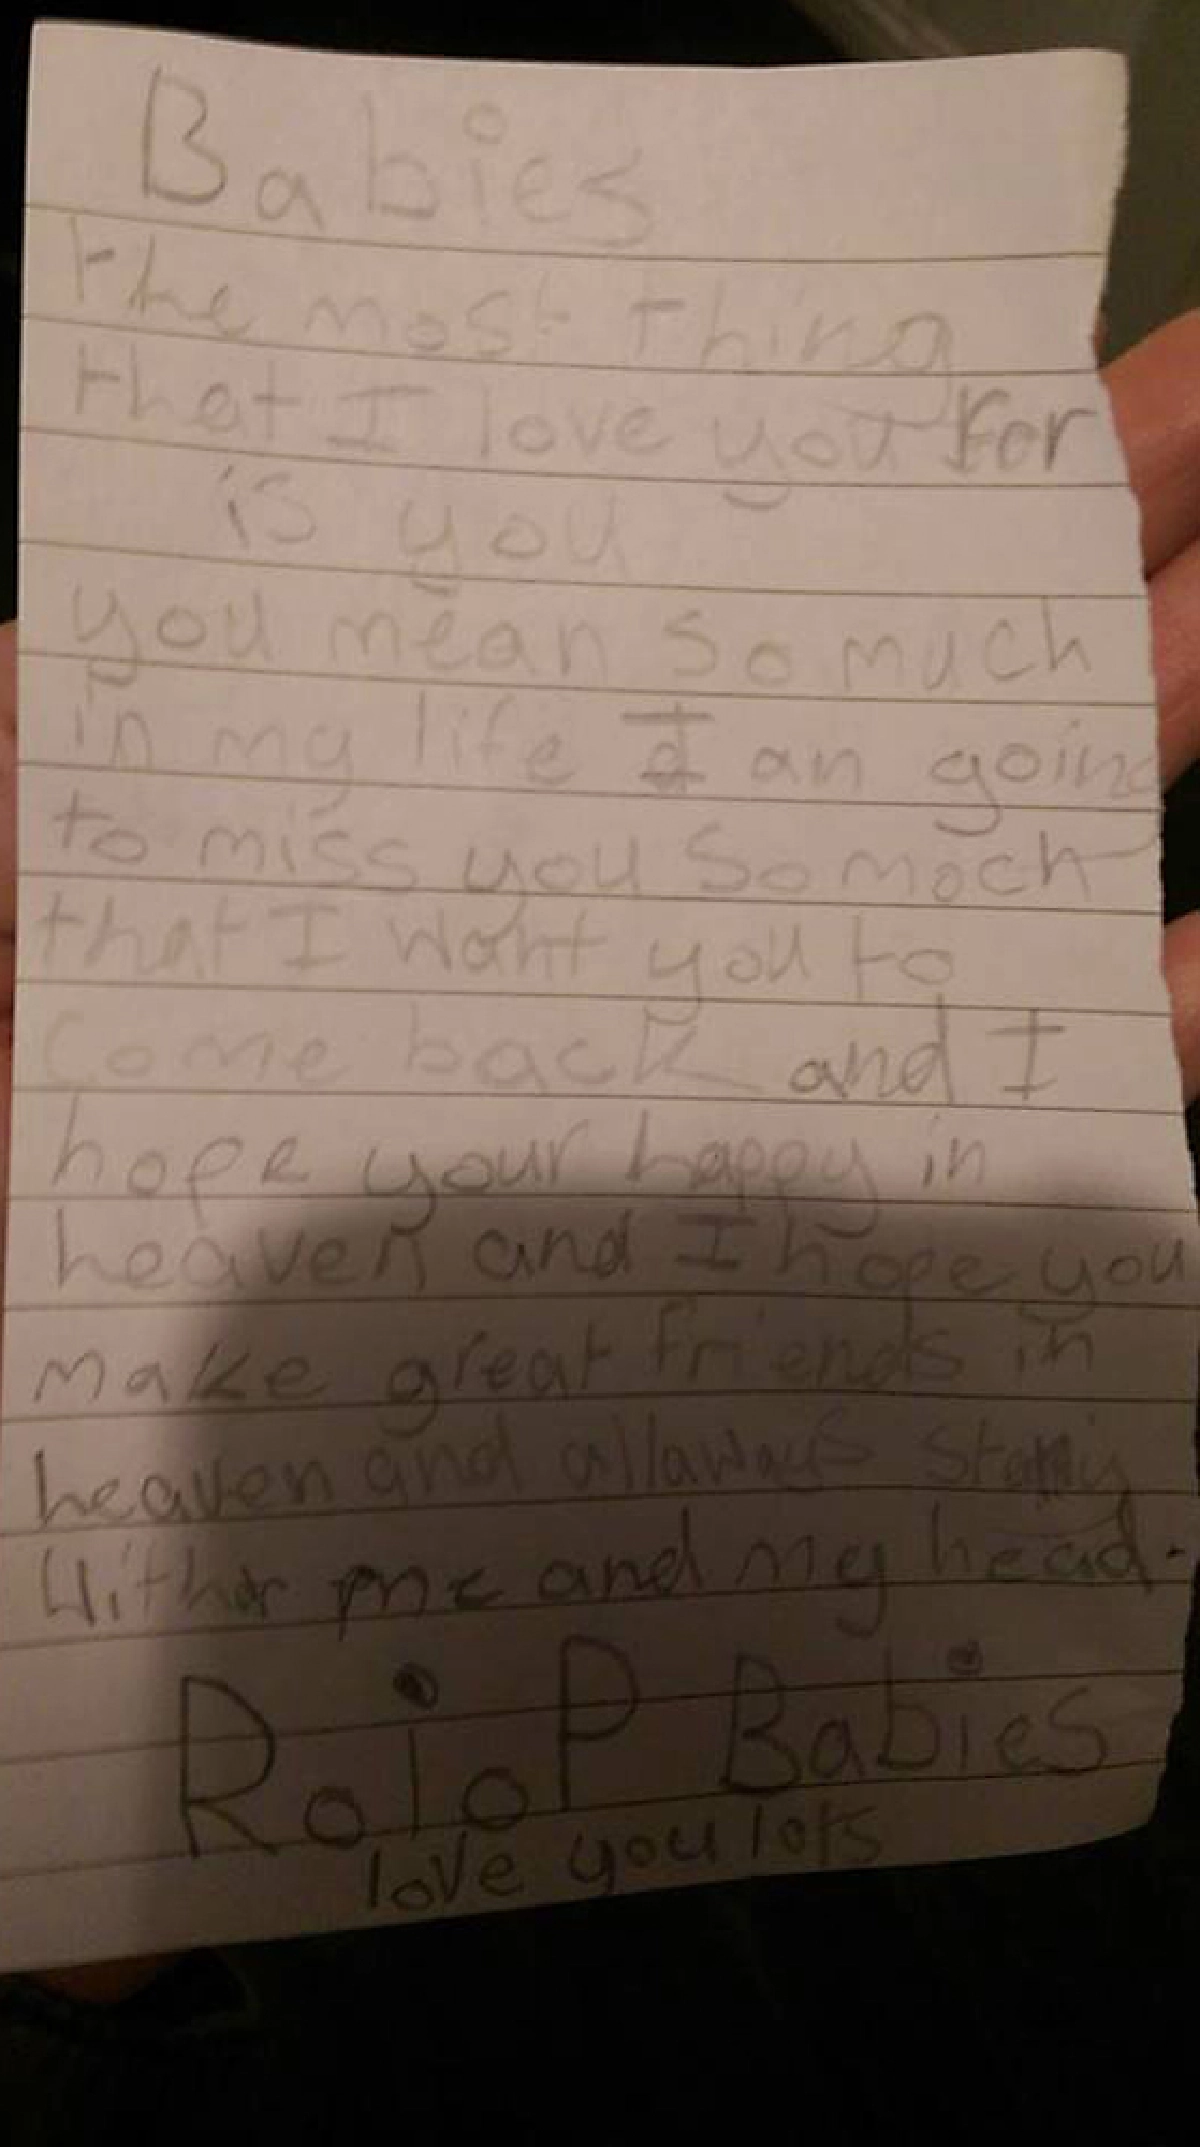 Babies
the most thing
that I love you For
is you
you mean so much
in my life I an going
to miss you So moch
that I want you to
Come back and I
hope your happy in
heaven and I hope you
make great friends in
heaven and allaways
With me and my head.
RoIoP Babies
love you lots